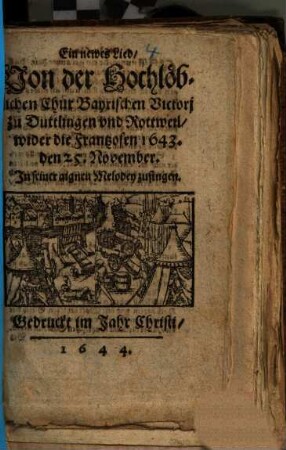 Ein newes Lied/ 4
Von der Hochlöb-
lichen Chur Bayrischen Victorj
zu Duttlingen vnd Rottweil/
wider die Frantzosen 1643.
den 25. November.
In seiner aignen Melodey zusingen.
Gedruckt im Jahr Christi/
1644.